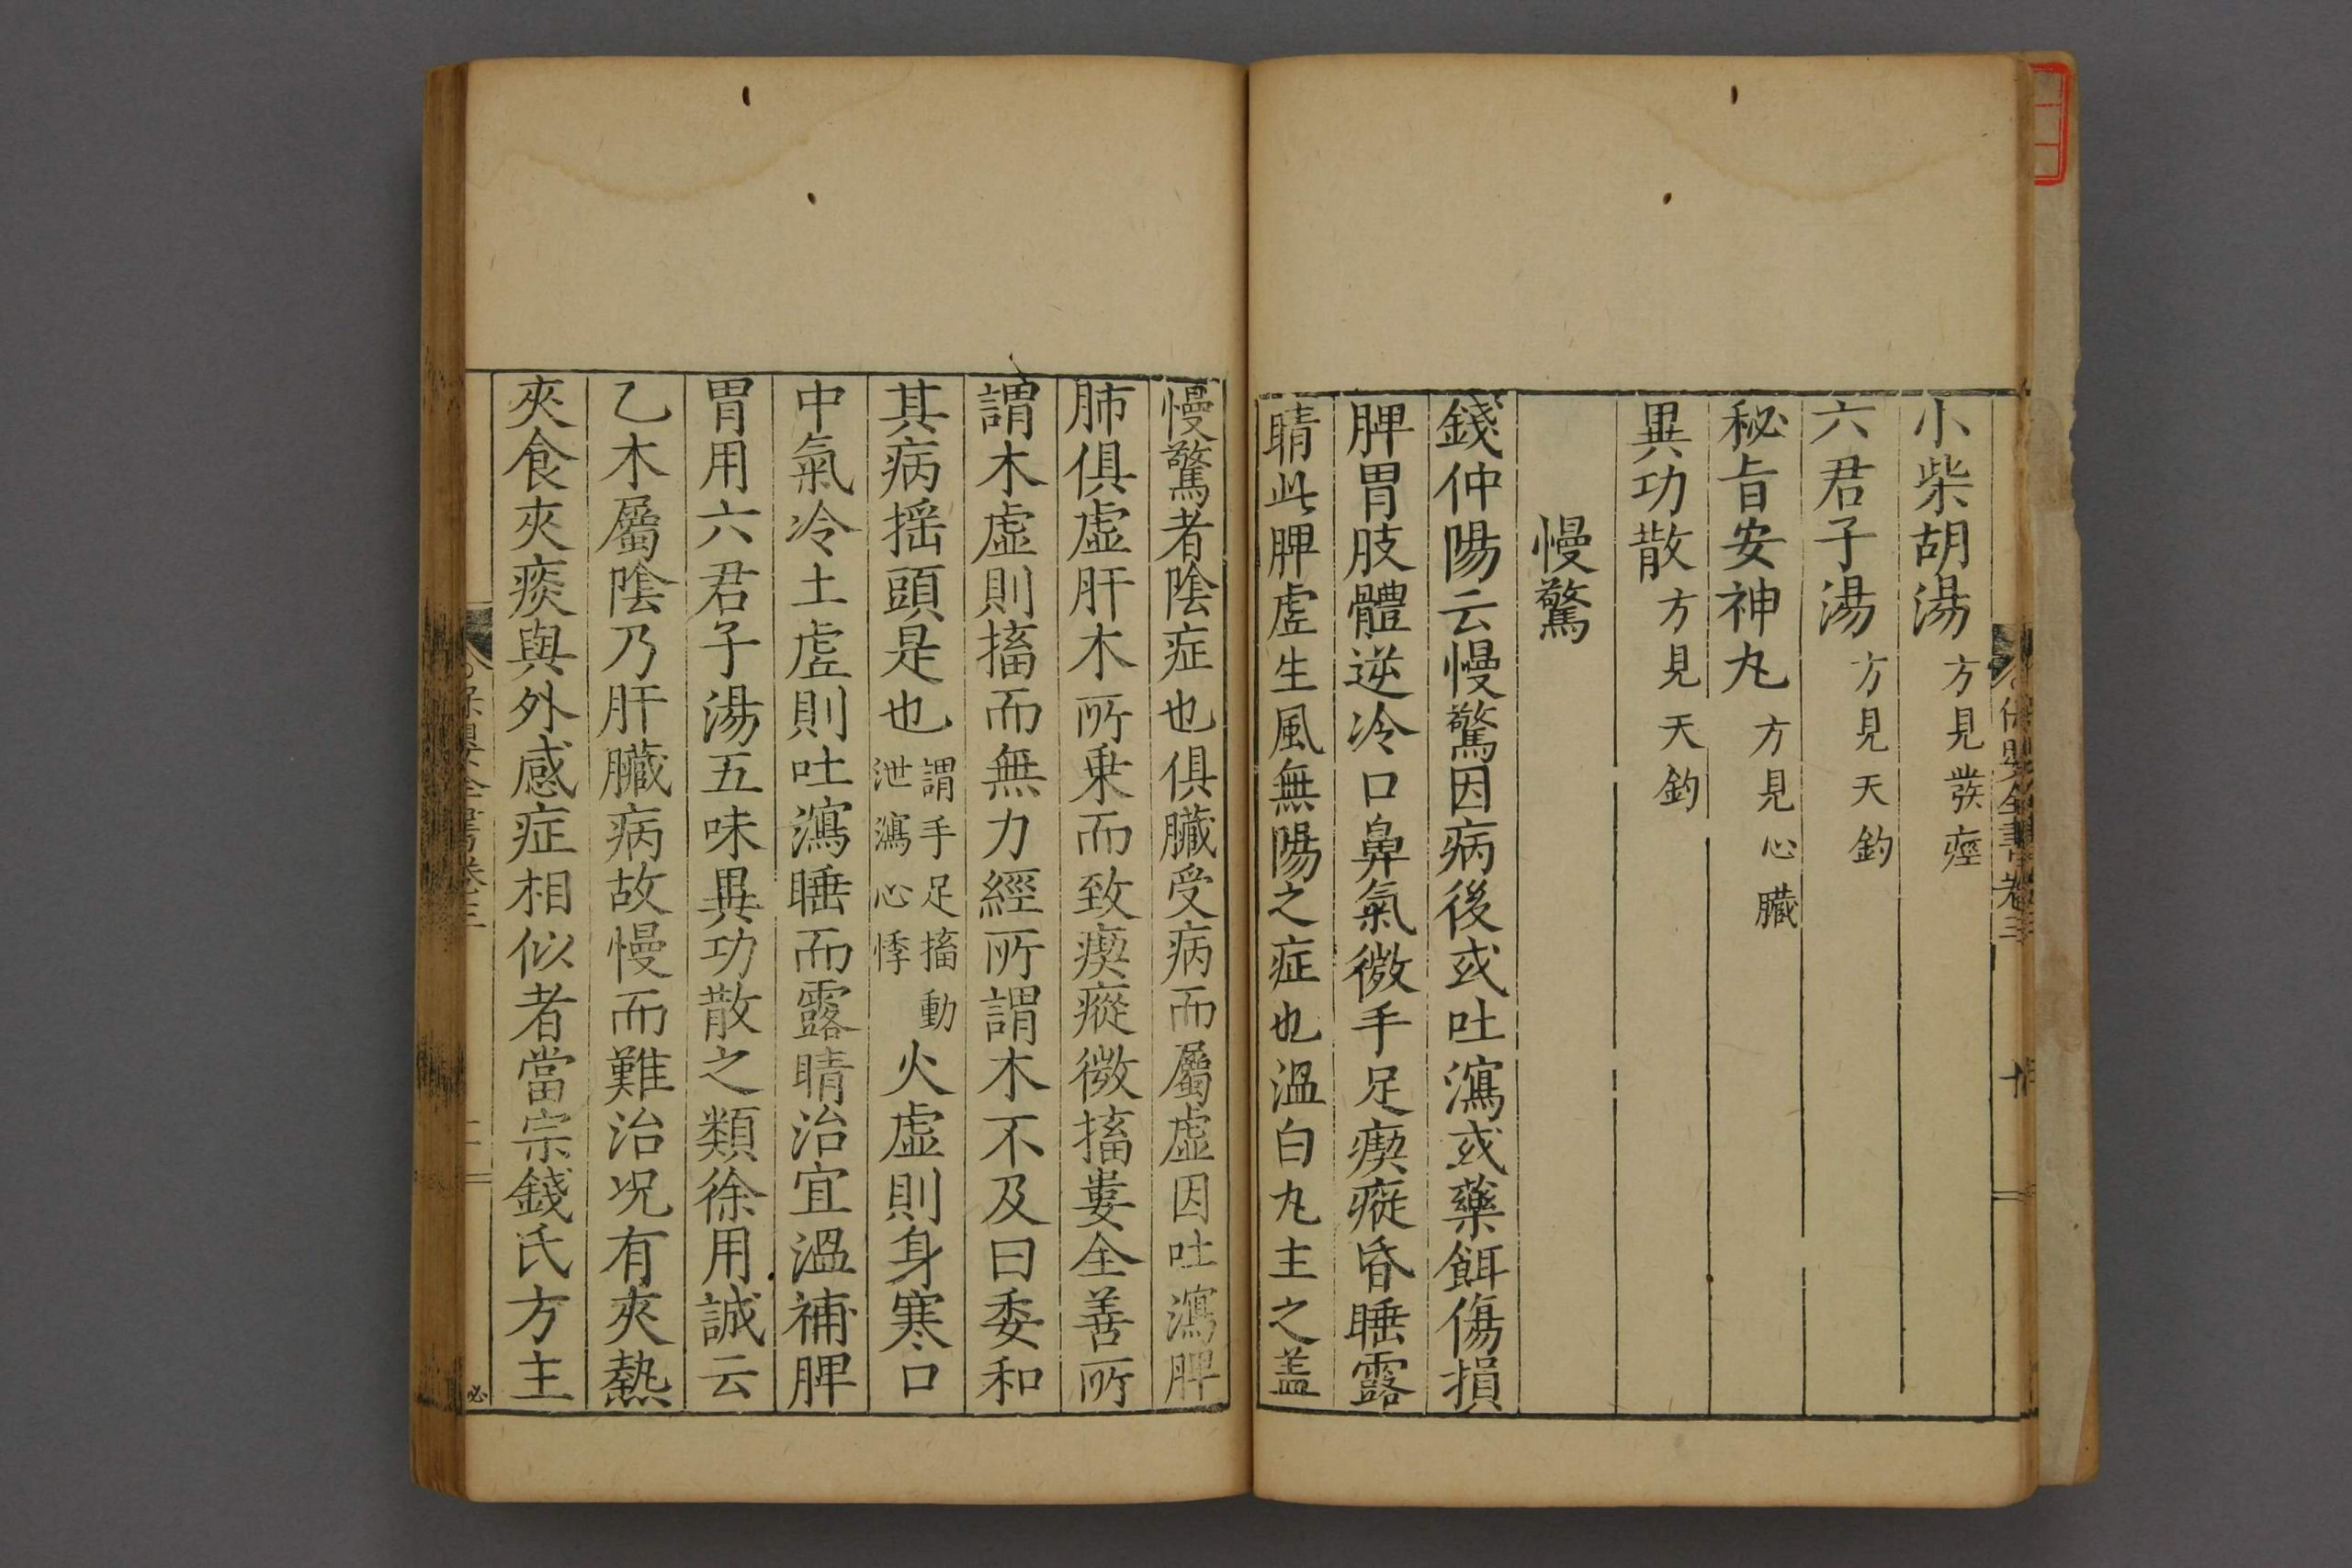 小柴胡湯 方見發痙
六君子湯 方見天釣
秘旨安神丸 方見心臟
異功散 方見天釣
慢驚
錢仲陽云慢驚因病後或吐瀉或藥餌傷損
脾胃肢體逆冷口鼻氣微手足瘈瘲昏睡露
睛此脾虛生風無陽之症也溫白丸主之盖
慢驚者陰症也俱臟受病而屬虛因吐瀉脾
肺俱虛肝木所乗而致瘈瘲微搐婁全善所
謂木虛則搐而無力經所謂木不及曰委和
其病揺頭是也 謂手足搐動 泄瀉心悸 火虛則身寒口
中氣冷土虛則吐瀉睡而露睛治宜溫補脾
胃用六君子湯五味異功散之類徐用誠云
乙木屬陰乃肝臟病故慢而難治况有夾熱
夾食夾痰與外感症相似者當宗錢氏方主